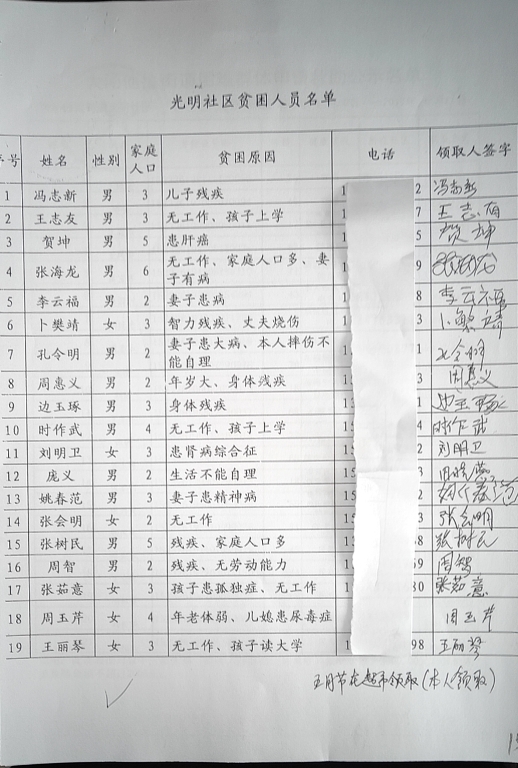 光明社区贫困人员名单
序号 姓名 性别 家庭人口 贫困原因 电话 领取人签字
1 冯志新 男 3 儿子残疾 1 2 冯志新
2 王志友 男 3 无工作、孩子上学 1 7 王志友
3 贺坤 男 5 患肝癌 1 5 贺坤
4 张海龙 男 6 无工作、家庭人口多、妻子有病 1 9
5 李云福 男 2 妻子患病 1 8 李云福
6 卜樊靖 女 3 智力残疾、丈夫烧伤 1 3 卜樊靖
7 孔令明 男 2 妻子患大病、本人摔伤不能自理 1 1
8 周惠义 男 2 年岁大、身体残疾 1 3 周惠义
9 边玉琢 男 3 身体残疾 1 1 边玉琢
10 时作武 男 4 无工作、孩子上学 1 4 时作武
11 刘明卫 女 3 患肾病综合征 15 2 刘明卫
12 庞义 男 2 生活不能自理 15 3
13 姚春范 男 3 妻子患精神病 15 2
14 张会明 女 2 无工作 15 3 张会明
15 张树民 男 5 残疾、家庭人口多 1 38 张树民
16 周智 男 2 残疾、无劳动能力 1 59 周智
17 张茹意 女 3 孩子患孤独症、无工作 1 80 张茹意
18 周玉芹 女 4 年老体弱、儿媳患尿毒症 1 周玉芹
19 王丽琴 女 3 无工作、孩子读大学 1 98 王丽琴
五月节在超市领取(本人领取)